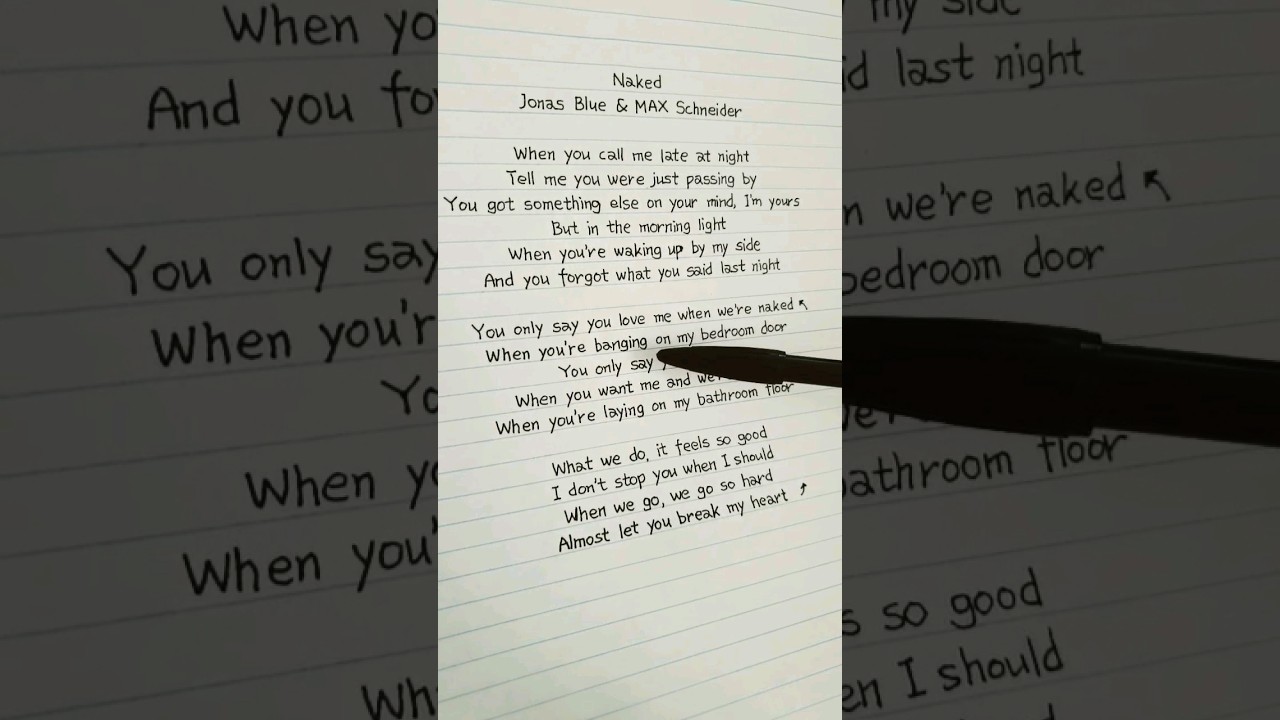 Naked
Jonas Blue & MAX Schneider
When you call me late at night
Tell me you were just passing by
You got something else on your mind, I'm yours
But in the morning light
When you're waking up by my side
And you forgot what you said last night
You only say you love me when we're naked ↖
When you're banging on my bedroom door
You only say
When you want me and
When you're laying on my bathroom floor
What we do, it feels so good
I don't stop you when I should
When we go, we go so hard
Almost let you break my heart ↗